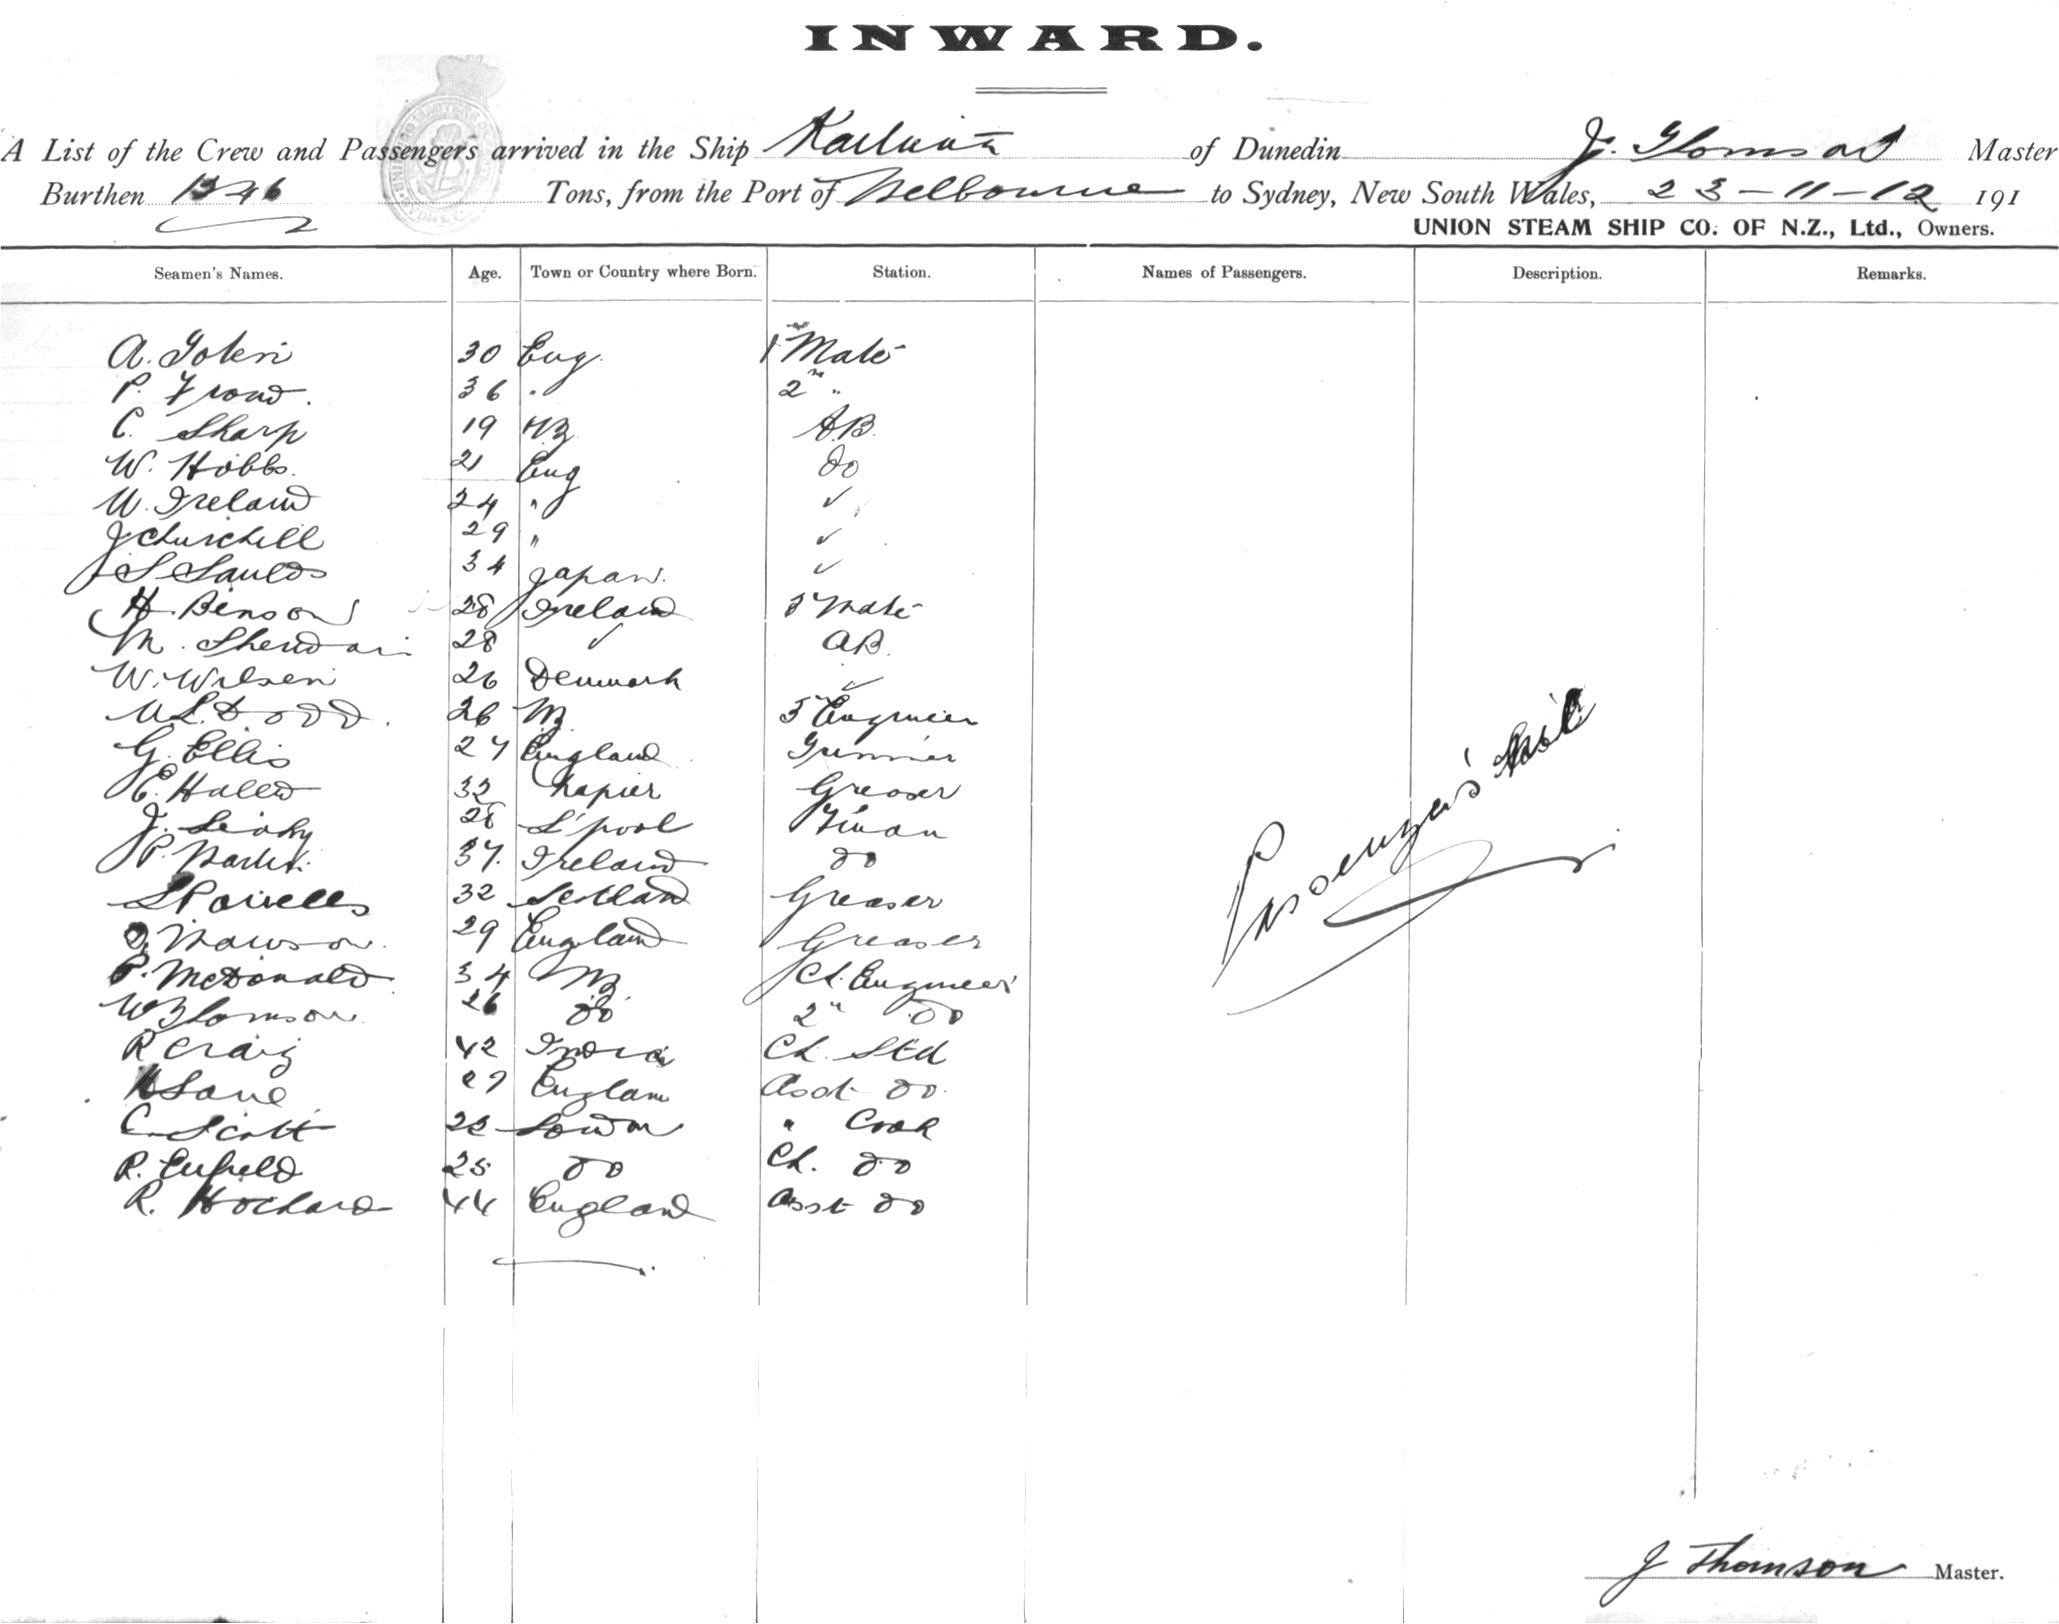 INWARD.
A List of the Crew and Passengers arrived in the Ship of Dunedin J. Thomson Master
Burthen 1346 Tons, from the Port of Melbourne to Sydney, New South Wales, 23-11-12 191
UNION STEAM SHIP CO. OF N.Z., Ltd., Owners.
Seamen's Names. Age. Town or Country where Born. Station. Names of Passengers. Description. Remarks.
A. 30 Eng. 1st Mate
P. Froud. 36 " 2nd "
C. Sharp 19 NZ AB.
W. Hobbs. 21 Eng do
W. Ireland 24 " ✓
J Churchill 29 " ✓
S 34 Japan. ✓
H. Benson 28 Ireland 3 Mate
M. 28 ✓ AB.
W. Wilsen 26 Denmark ✓
L. Dodd. 26 NZ 3 Engineer
G. Ellis 27 England Trimmer
E. 32 Napier Greaser
J. Leahy 28 L'pool F'man
P. 37. Ireland do
S Powells 32 Scotland Greaser
Mawson. 29 England Greaser
P. McDonald 34 NZ Ch. Engineer
W Thomson. 26 do 2nd do
R Craig 42 India Ch. Std
H Lane 27 England Asst do.
C. Scott London " Cook
R. Enfield 25 do Ch. do
R. Hochard 44 England Asst do
Passengers Nil
J Thomson Master.